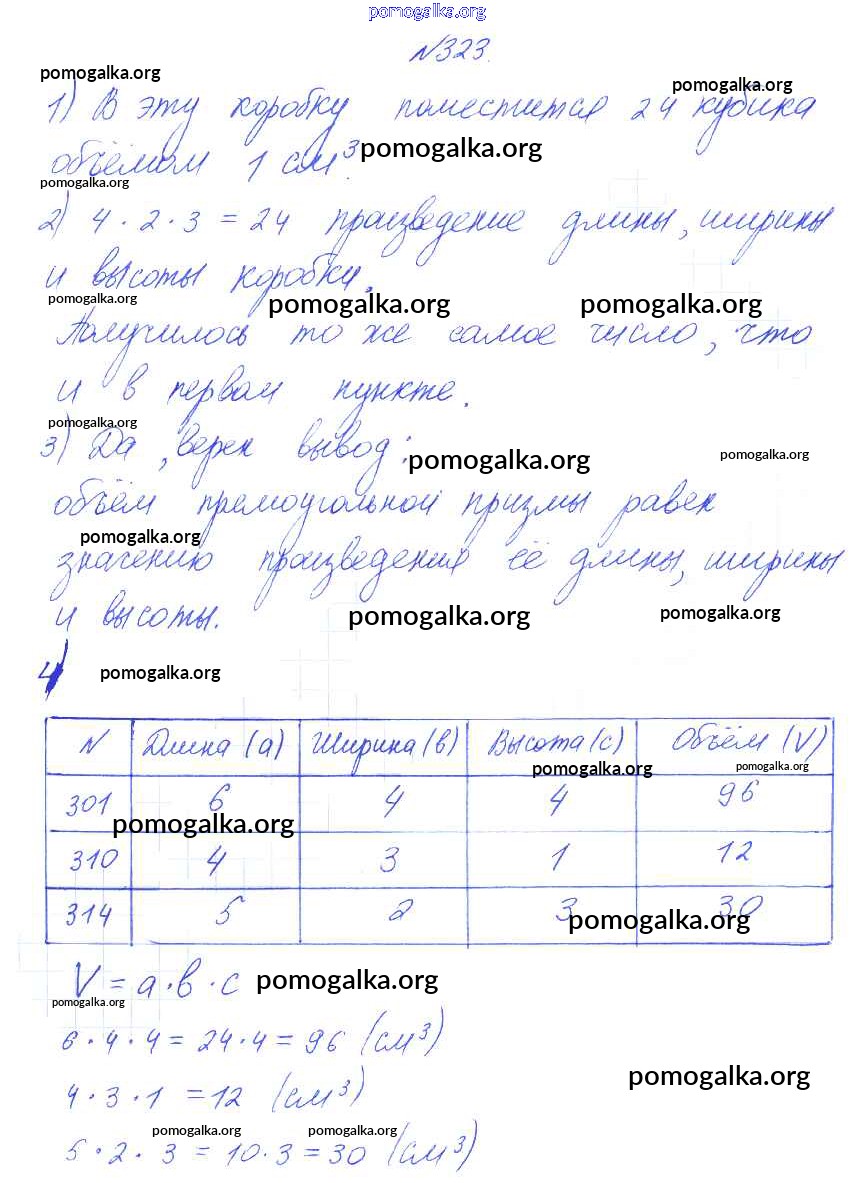 pomogalka.org
№323.
pomogalka.org
pomogalka.org
1) В эту коробку поместится 24 кубика
объёмом 1 см³.
pomogalka.org
pomogalka.org
2) 4 · 2 · 3 = 24 произведение длины, ширины
и высоты коробки.
pomogalka.org
pomogalka.org
pomogalka.org
Получилось то же самое число, что
и в первом пункте.
pomogalka.org
3) Да, верен вывод:
pomogalka.org
pomogalka.org
объём прямоугольной призмы равен
pomogalka.org
значению произведения её длины, ширины
и высоты.
pomogalka.org
pomogalka.org
4)
pomogalka.org
N Длина (а) Ширина (в) Высота (с) Объём (V)
pomogalka.org
pomogalka.org
301 6 4 4 96
pomogalka.org
310 4 3 1 12
314 5 2 3 30
pomogalka.org
V = a · в · c
pomogalka.org
pomogalka.org
6 · 4 · 4 = 24 · 4 = 96 (см³)
pomogalka.org
4 · 3 · 1 = 12 (см³)
pomogalka.org
pomogalka.org
5 · 2 · 3 = 10 · 3 = 30 (см³)